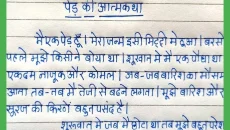 पेड़ की आत्मकथा
मैं एक पेड़ हूँ। मेरा जन्म इसी मिट्टी में हुआ। बरसों
पहले मुझे किसीने बोया था। शुरुवात में मैं एक पौधा था
एकदम नाजूक और कोमल। जब-जब बारिश का मौसम
आता तब-तब मैं तेजी से बढने लगता। मुझे बारिश और
सूरज की किरणें बहुत पसंद है।
शुरुवात में जब मैं छोटा था तब मुझे बहुत परेश